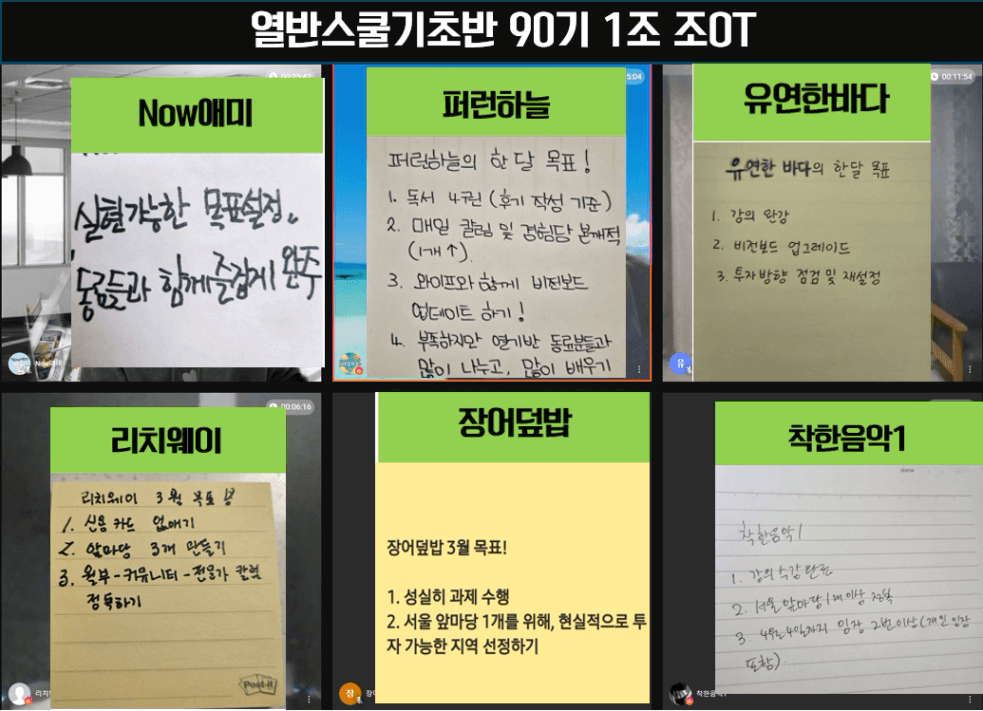 열반스쿨기초반 90기 1조 조OT
Now애미
실현가능한 목표설정.
동료들과 함께 즐겁게 완주
퍼런하늘
5:04
퍼런하늘의 한 달 목표!
1. 독서 4권 (후기 작성 기준)
2. 매일 칼럼 및 경험담 본깨적
(1개↑).
3. 와이프와 함께 비전보드
업데이트 하기!
4. 부족하지만 열기반 동료분들과
많이 나누고, 많이 배우기
유연한바다
00:11:54
유연한 바다의 한달 목표
1. 강의 완강
2. 비전보드 업그레이드
3. 투자방향 점검 및 재설정
유
리치웨이
00:06:16
리치웨이 3월 목표
1. 신용카드 없애기
2. 앞마당 3개 만들기
3. 월부-커뮤니티-전문가 칼럼
정독하기
Post-it
장어덮밥
장어덮밥 3월 목표!
1. 성실히 과제 수행
2. 서울 앞마당 1개를 위해, 현실적으로 투
자 가능한 지역 선정하기
장
착한음악1
date
착한음악1
1. 강의 수강 완료
2. 서울 앞마당 1개 이상 정복
3. 4월 4일까지 임장 2번 이상 (개인 임장
포함)
착한음악1